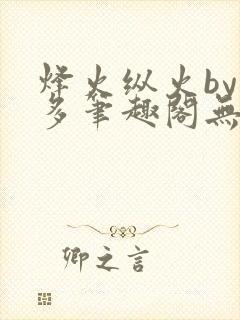 烽火纵火by
多笔趣阁無
卿之言